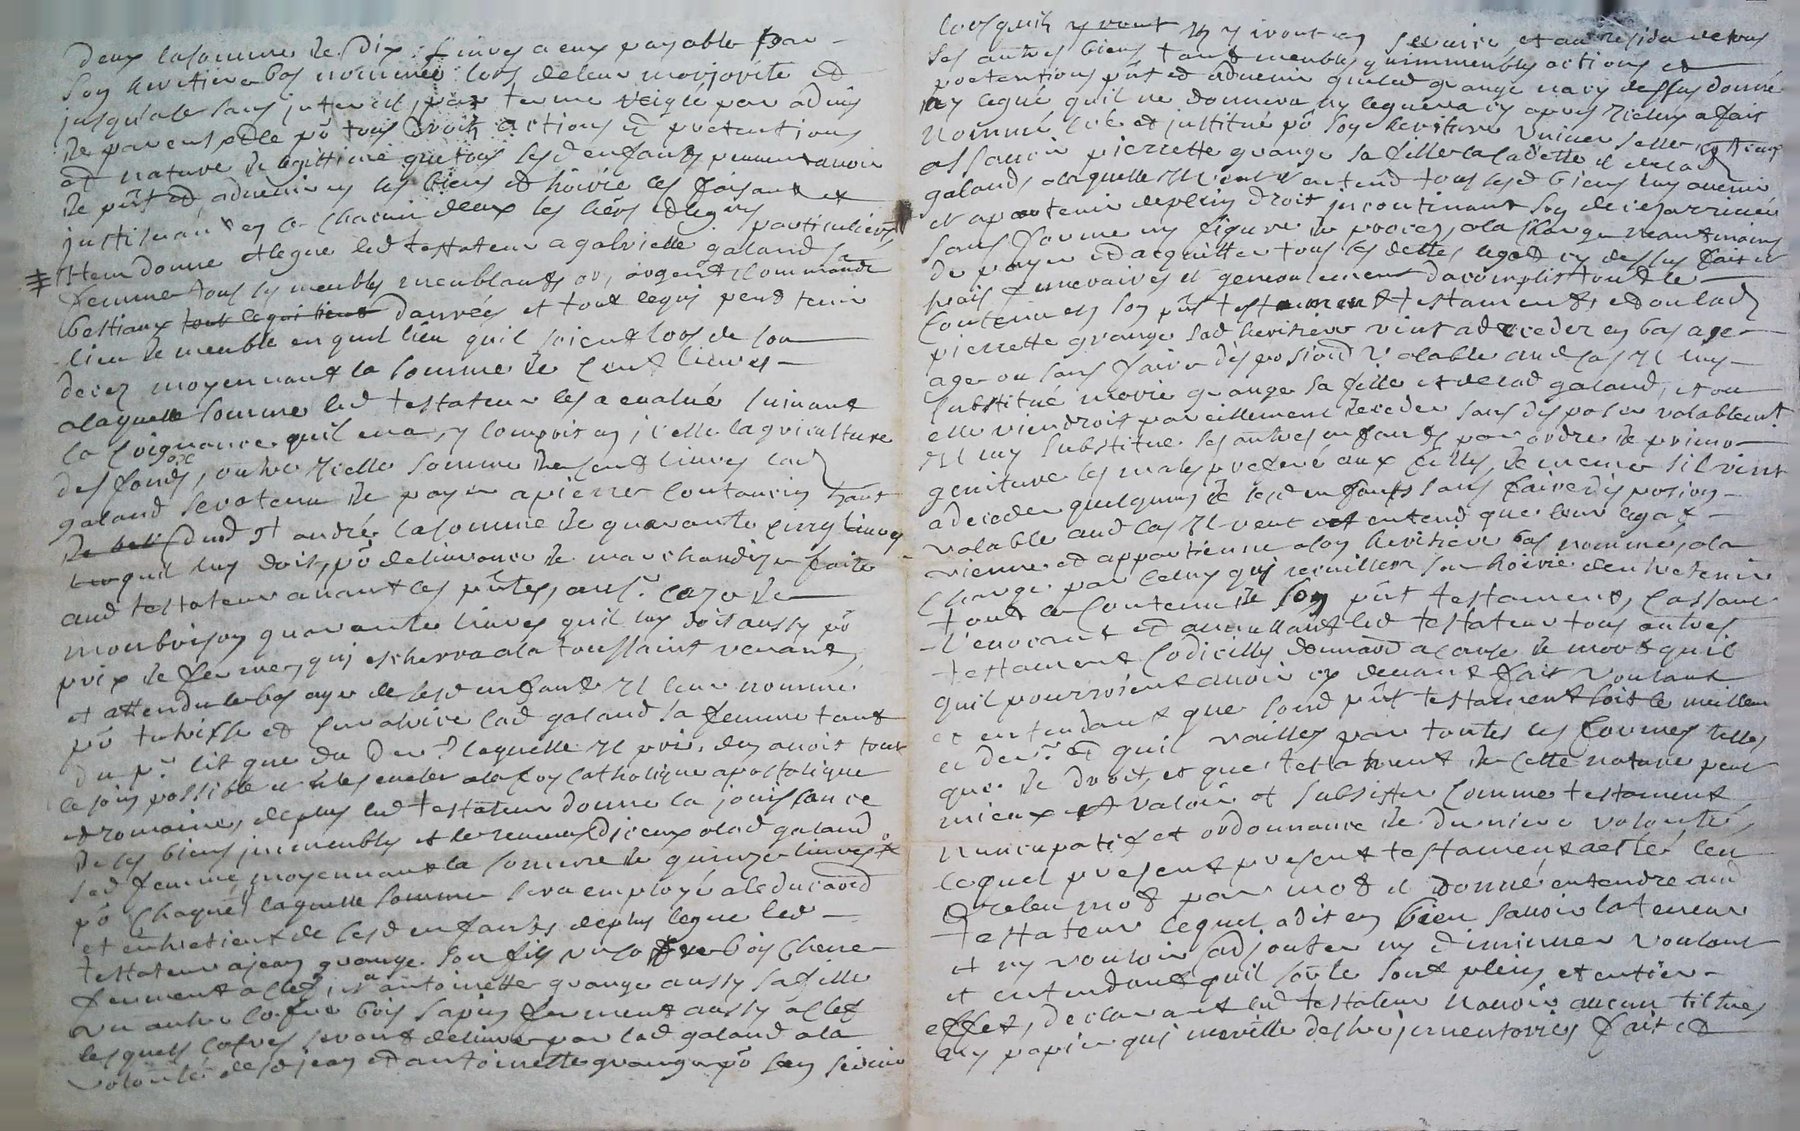 deux la somme de dix livres a eux payable par
son heritiere bas nommée lors de leur majorité et
jusqu'alor sans interest, par terme reiglé par advis
de parens et ce pō tous droits actions et pretentions
et nature de legittime que tous lesd enfants peuvent avoir
de pn̄t et advenir en les biens et hoirie les faisant et
instituant en ce chacun deux les hers et legrs particuliers
Item donne et legue led testateur a gabrielle galand sa
femme tous les meubles meublants or, argent commande
bestiaux tout ce qui tient danrées et tout ce qui peut tenir
lieu de meuble en quel lieu quil soient lors de son
decez moyennant la somme de cent livres
a laquelle somme led testateur les a evalué suivant
la coignance quil en a, y compris en icelle lagriculture
des fonds, outre icelle somme de cent livres lad
galand sera tenu de payer a pierre coutancin hant
dud St andré la somme de quarante cinq livres
quil luy doit, pō delivrance de marchandise faite
aud testateur avant ces pn̄tes, au Sr cazo de
montbrison quarante livres quil luy doit aussy pō
prix de ferme, qui escherra a la toussaint venant,
et attendu le bas age de lesd enfants Il leur nomme
pō tutrisse et curatrice lad galand sa femme tant
du pr lit que du der laquelle Il prie, den avoir tout
le soin possible et de les eslever a la foy catholique apostolique
et romaine, de plus led testateur donne la jouissance
de ses biens immeubles et le revenu diceux a lad galand
sad femme, moyennant la somme de quinze livres
pō chaque laquelle somme sera employé a leducaōn
et entretient de lesd enfants, de plus legue led
testateur a jean grange son fils un coffre bois chene
ferment a clef, et a antoinette grange aussy sa fille
un autre coffre bois sapin ferment aussy a clef
lesquels cofres seront delivre par lad galand a la
volonté desd jean et antoinette grange pō sen servir
lorsquils y iront en service et au residu de tous
ses autres biens tant meubles quimmeubles actions et
pretentions pn̄t et advenir quiled grange na cy dessus donné
ny legué quil ne donnera ny leguera cy apres Icelluy a fait
nommé créé et justitué pō son heritiere universelle
assavoir pierrette grange sa fille la cadette et de lad
galand, a laquelle Il veut et entend tous lesd biens luy avenir
et apartenir de plein droit incontinent son deces arrivé
sans forme ny figure de proces, a la charge neantmoins
de payer et dacquitter tous les dettes legat cy dessus fait et
frais funeraires et generalement daccomplir tout le
contenu en son pn̄t testament et ou lad
pierrette grange sad heritiere vint a deceder en bas age
age ou sans faire disposiōn valable aud cas Il luy
substitué marie grange sa fille et de lad galand, et ou
elle viendroit pareillement deceder sans disposer valablemt
Il luy substitue ses autres enfants par ordre de primo
geniture les males preferé aux filles, de meme sil vint
a deceder quelquns de lesd enfants sans faire disposion
valable aud cas Il veut et entend que leur legat
vienne et appartienne a son heritiere bas nommée, a la
charge par celuy qui recuillera sa hoirie dentretenir
tout le contenu de son pn̄t testament, cassant
revocant et annullant led testateur tous autres
testament codicilles donnaōn a cause de mort quil
quil pourroient avoir cy devant fait voulant
et entendant que soud pn̄t testament soit le meilleur
et der et quil vailles par toutes les formes telles
que de droit, et que testament de cette nature peut
mieux valoir et subsister comme testament
nuncupatif et ordonnance de derniere volonté,
lequel present present testament a etté leu
et releu mot par mot et donné entendre aud
testateur lequel a dit en bien savoir la teneur
et ny vouloir adjouter ny diminuer voulant
et entendant quil sorte sont plein et entier
effet, declarant led testateur navoir aucun tiltres
ny papier qui merille destre inventoriés fait et